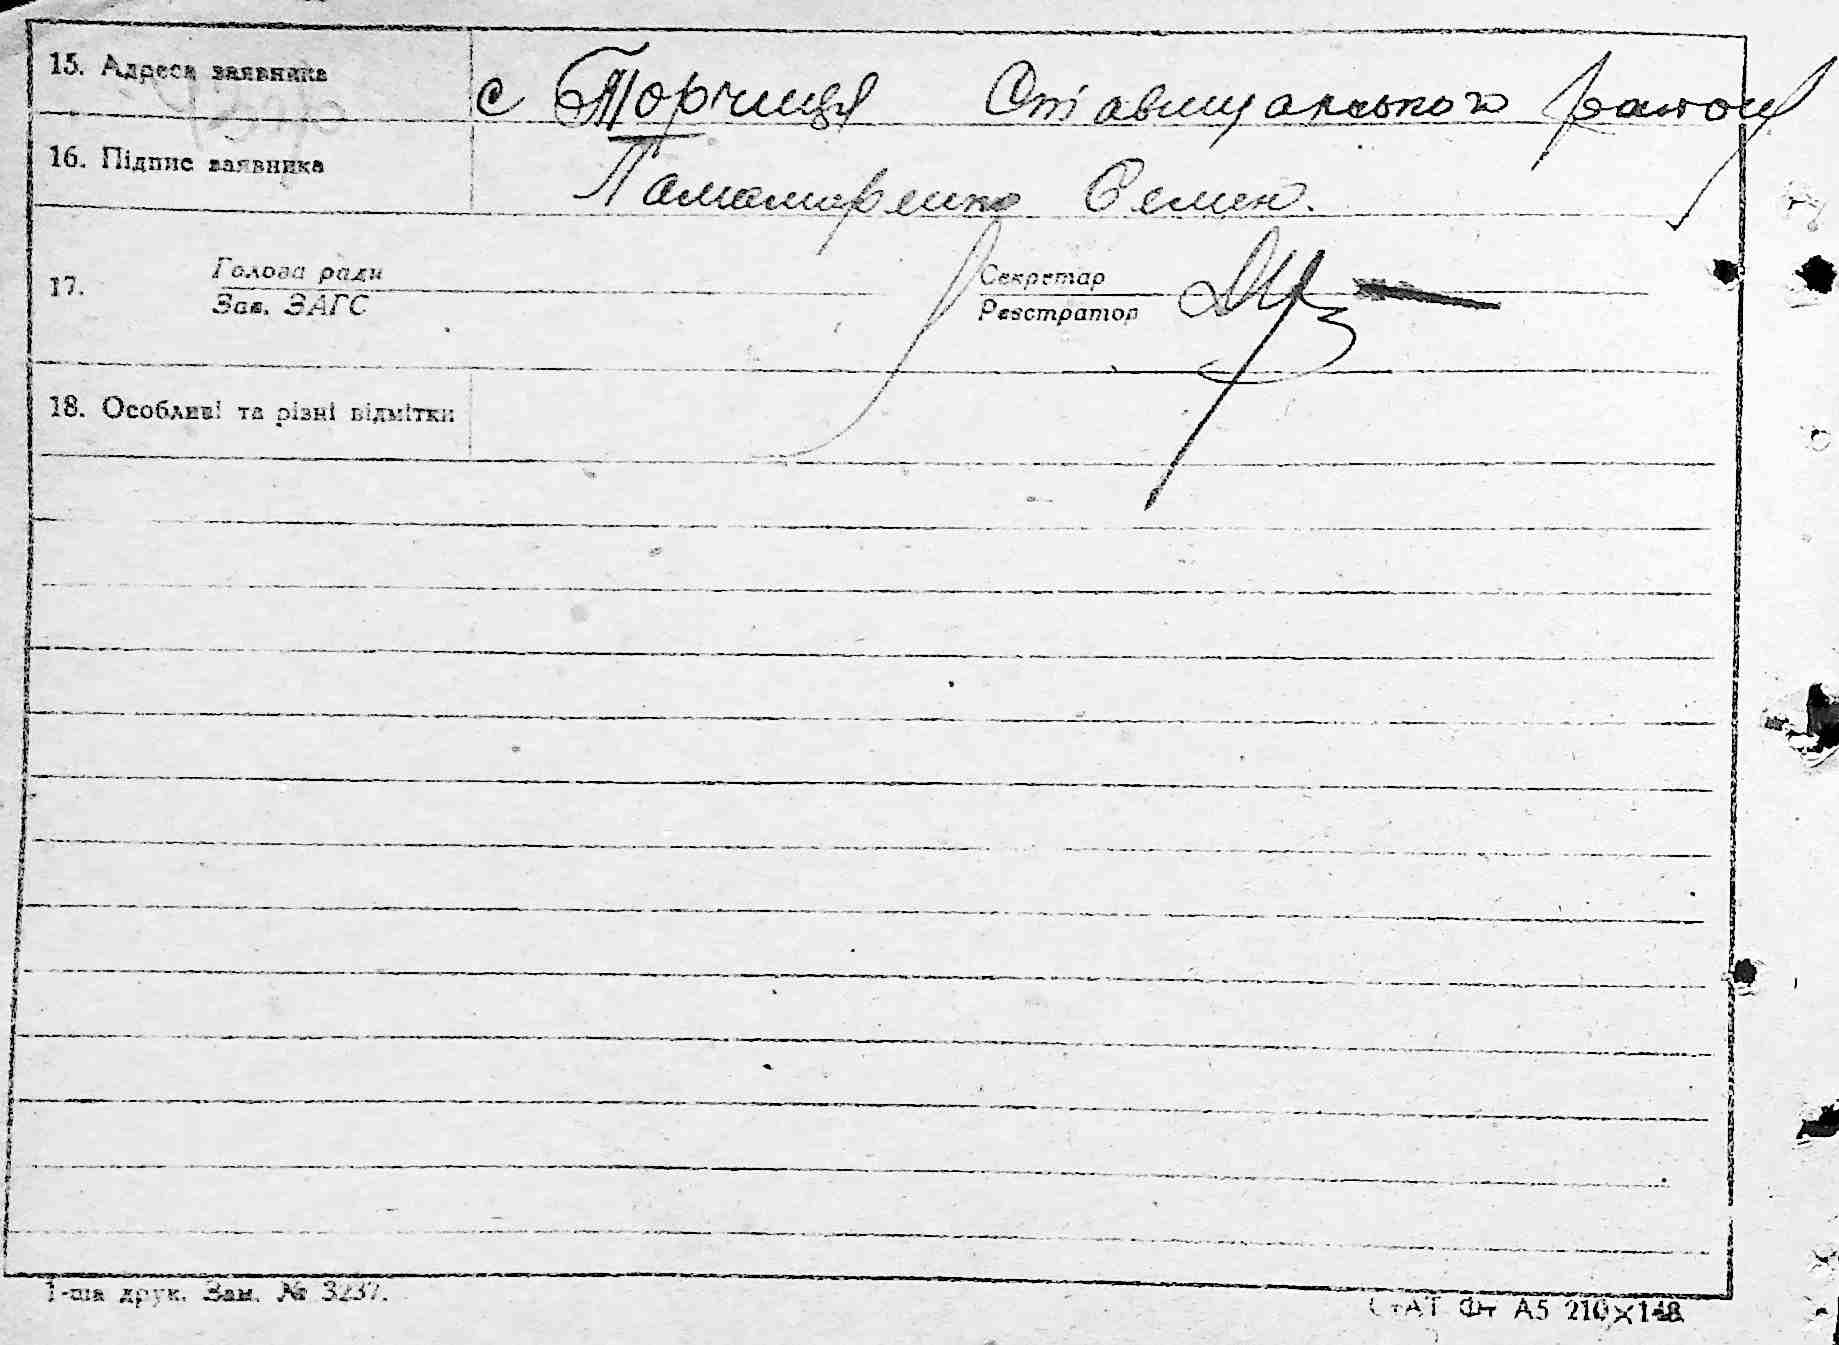 15. Адреса заявника
с Торчиця Ставищанського району
16. Підпис заявника
Паламаренко Семен.
17.
Голова ради
Зав. ЗАГС
Секретар
Реєстратор
18. Особливі та різні відмітки
1-ша друк. Зам. № 3237.
СтАТ Фт А5 210×148